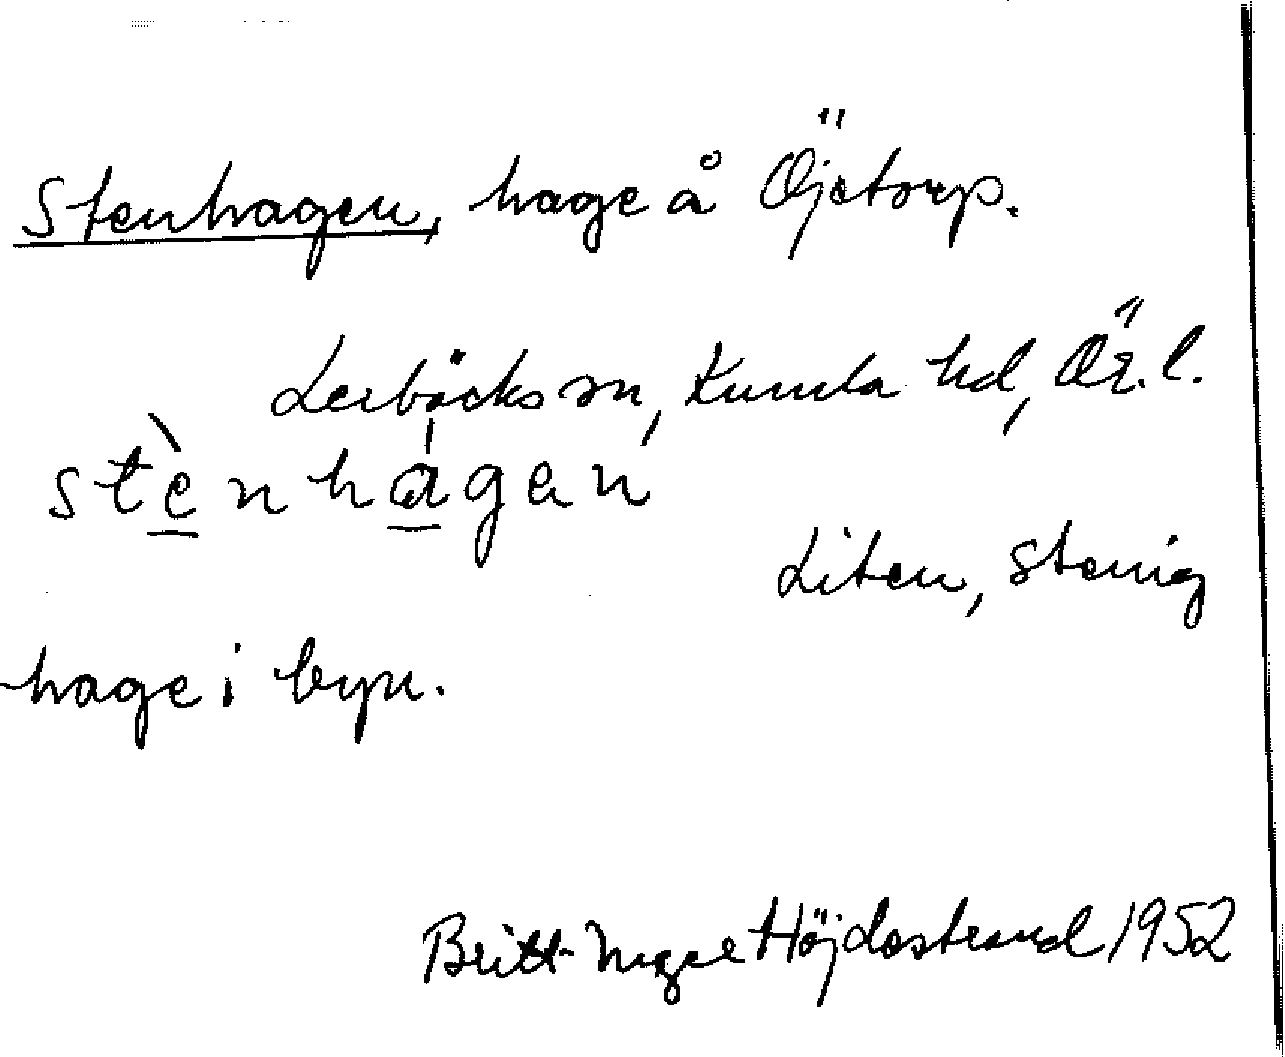 Stenhagen, hage å Öjetorp.
Lerbäcks sn, Kumla hd, Ör. l.
stènhágen
Liten, stenig
hage i byn.
Britt-Inger Höjdestrand 1952